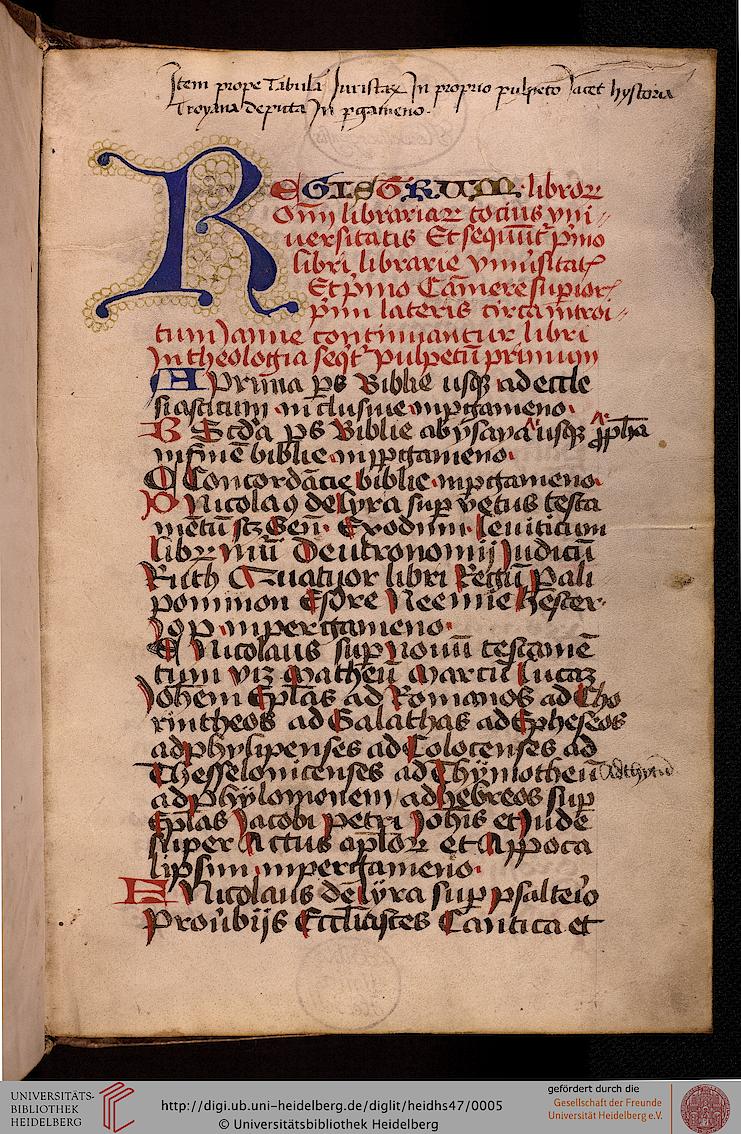 Item prope Tabulā Juristaꝝ In proprio pulpeto Jacet hystoria
Troyana depicta Jn ꝑgameno.
REGISTRUM libroꝝ
Oīm librariaꝝ tocius vni-
uersitatis Et sequūt᷑ pͥmo
libri librarie vniūsitatꝭ
Et pͥmo Camere suꝑior
pͥmi lateris circa introi-
tum Janue continuantur libri
In theologia seqt᷑ pulpetū primum
A Prima ꝑs Biblie usqꝫ ad eccle
siasticum inclusiue in ꝑgameno.
B Scda ꝑs Biblie ab ysaya usqꝫ ꝓpha
in finē biblie in ꝑgameno.
C Concordācie biblie in ꝑgameno.
D Nicolaꝰ de lyra suꝑ vetus testa
mētū scꝫ Geń. Exodum. leuiticum
libꝝ nūi Deutronomij Judicū
Ruth Quatuor libri Regū Pali
pominon Esdre Neemie Hester.
Jop in pergameno.
E Nicolaus suꝑ nouū testamē
tum viꝫ Matheū Marcū lucaꝫ
Johem Eplas ad Romanos ad Cho
rintheos ad Galathas ad Epheseos
ad phylipenses ad Colocenses ad
Thesselonicenses ad Thymotheū Ad thytū
ad phylomonem ad hebreos suꝑ
Eplas Jacobi Petri Johis et Jude
super Actus aploꝝ et Appoca
lipsim in pergameno.
F Nicolaus de lyra suꝑ psalterͥo
Proūbijs Eccliastes Cantica et
UNIVERSITÄTS-
BIBLIOTHEK
HEIDELBERG
http://digi.ub.uni-heidelberg.de/diglit/heidhs47/0005
© Universitätsbibliothek Heidelberg
gefördert durch die
Gesellschaft der Freunde
Universität Heidelberg e.V.